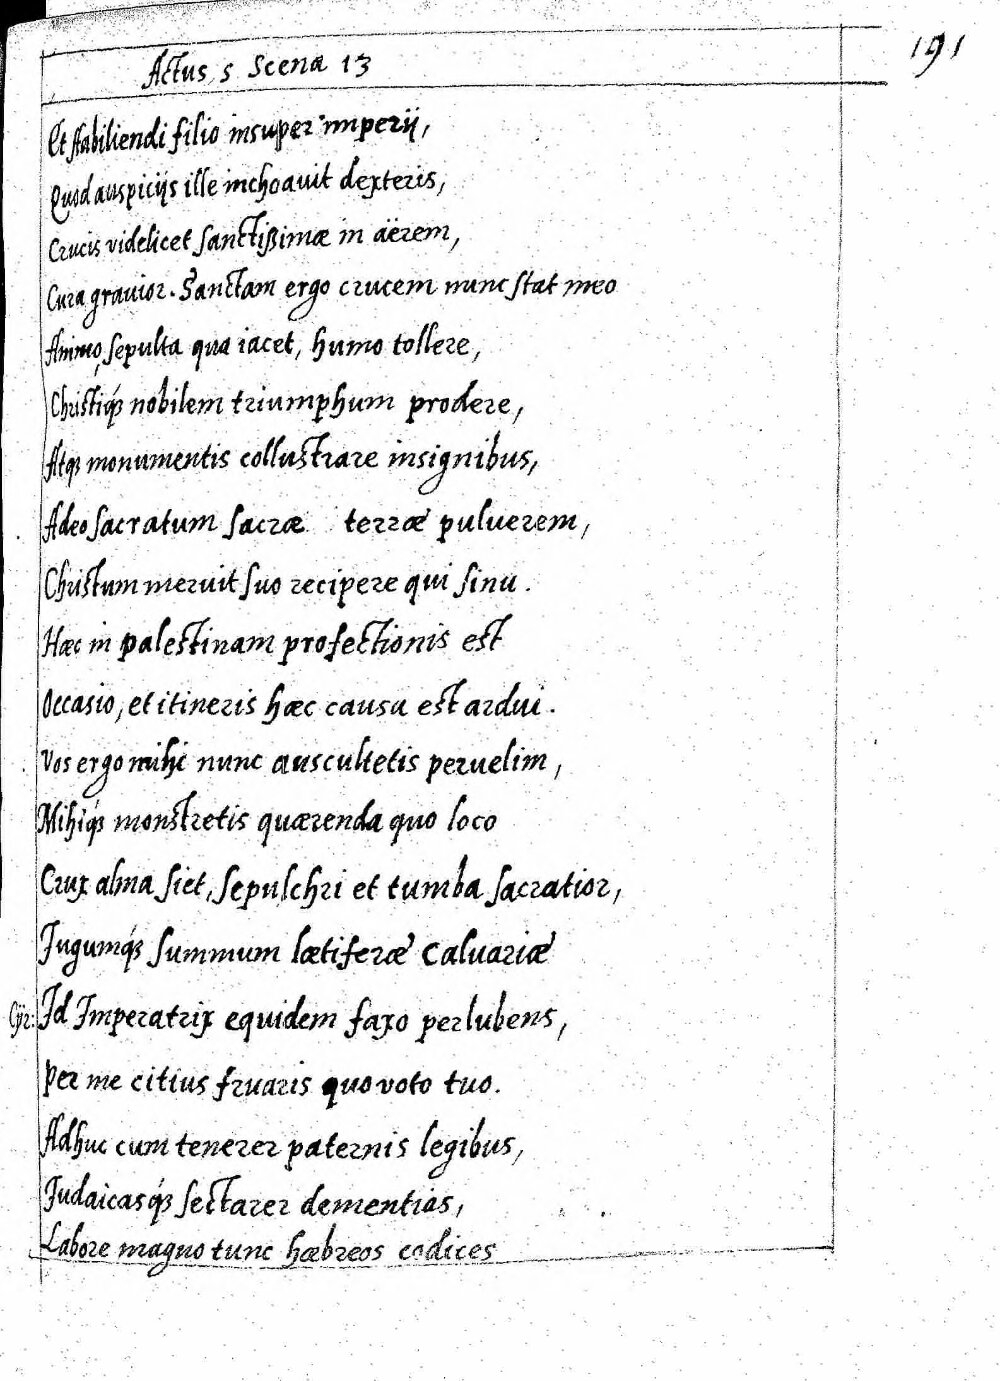 191
Actus 5 Scena 13
Et stabiliendi filio insuper imperij,
Quod auspicijs ille inchoauit dexteris,
Crucis videlicet sanctißimæ in aërem,
Cura grauior. Sanctam ergo crucem nunc stat meo
Animo, sepulta qua iacet, humo tollere,
Christiq́ꝫ nobilem triumphum prodere,
Atqꝫ monumentis collustrare insignibus,
Adeo sacratum sacræ terræ puluerem,
Christum meruit suo recipere qui sinu.
Hæc in palestinam profectionis est
Occasio, et itineris hæc causa est ardui.
Vos ergo mihi nunc auscultetis peruelim,
Mihiq́ꝫ monstretis quærenda quo loco
Crux alma siet, sepulchri et tumba sacratior,
Iugumq́ꝫ summum lætiferæ Caluariæ
Cÿr: Id Imperatrix equidem faxo perlubens,
Per me citius fruaris quo voto tuo.
Adhuc cum tenerer paternis legibus,
Iudaicasq́ꝫ sectarer dementias,
Labore magno tunc hæbreos codices